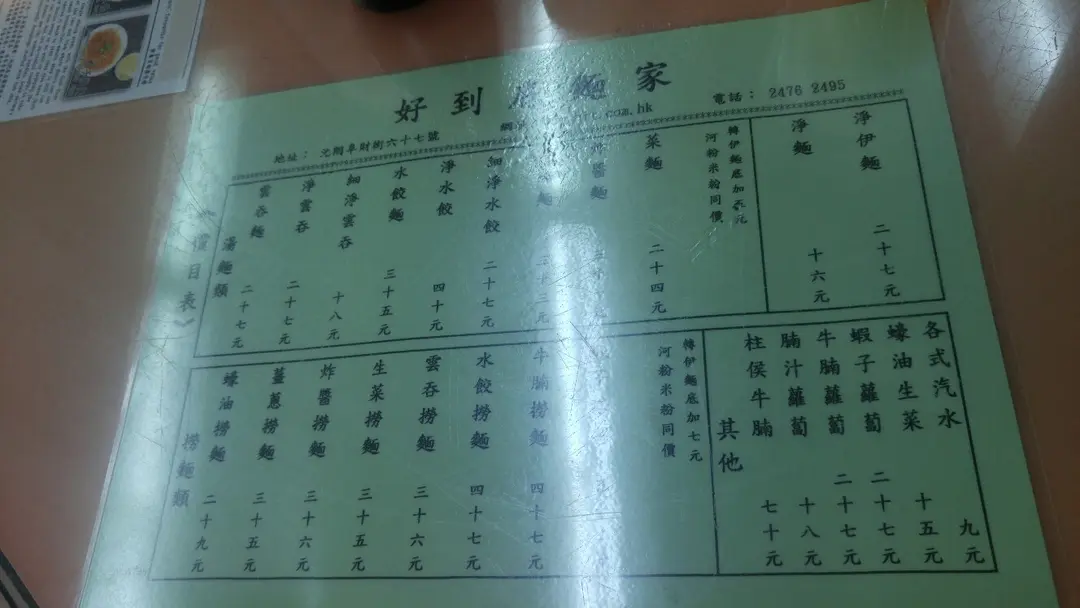 好到底麵家
電話： 2476 2495
.com.hk
地址： 元朗阜財街六十七號
《價目表》
湯麵類
雲吞麵 二十七元
淨雲吞 二十七元
細淨雲吞 十八元
水餃麵 三十五元
淨水餃 四十元
細淨水餃 二十七元
麵
醬麵
菜麵 二十四元
河粉米粉同價
轉伊麵底加 元
淨麵 十六元
淨伊麵 二十七元
撈麵類
蠔油撈麵 二十九元
薑蔥撈麵 三十五元
炸醬撈麵 三十六元
生菜撈麵 三十五元
雲吞撈麵 三十六元
水餃撈麵 四十七元
牛腩撈麵 四十七元
河粉米粉同價
轉伊麵底加七元
其他
柱侯牛腩 七十元
腩汁蘿蔔 十八元
牛腩蘿蔔 二十七元
蝦子蘿蔔 二十七元
蠔油生菜 十五元
各式汽水 九元